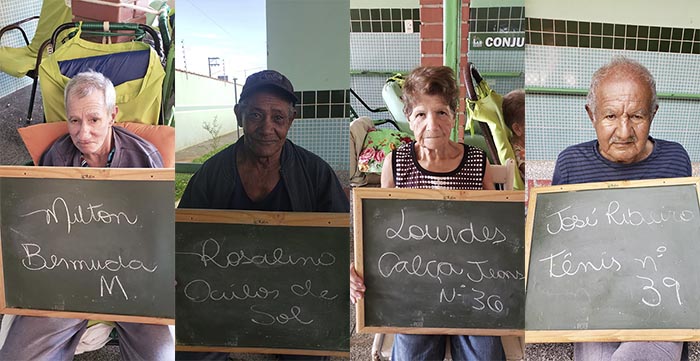 CONJU
Milton
Bermuda
M.
Rosalino
Oculos de
Sol
Lourdes
Calça Jeans
Nº 36
José Ribeiro
Tênis nº
39